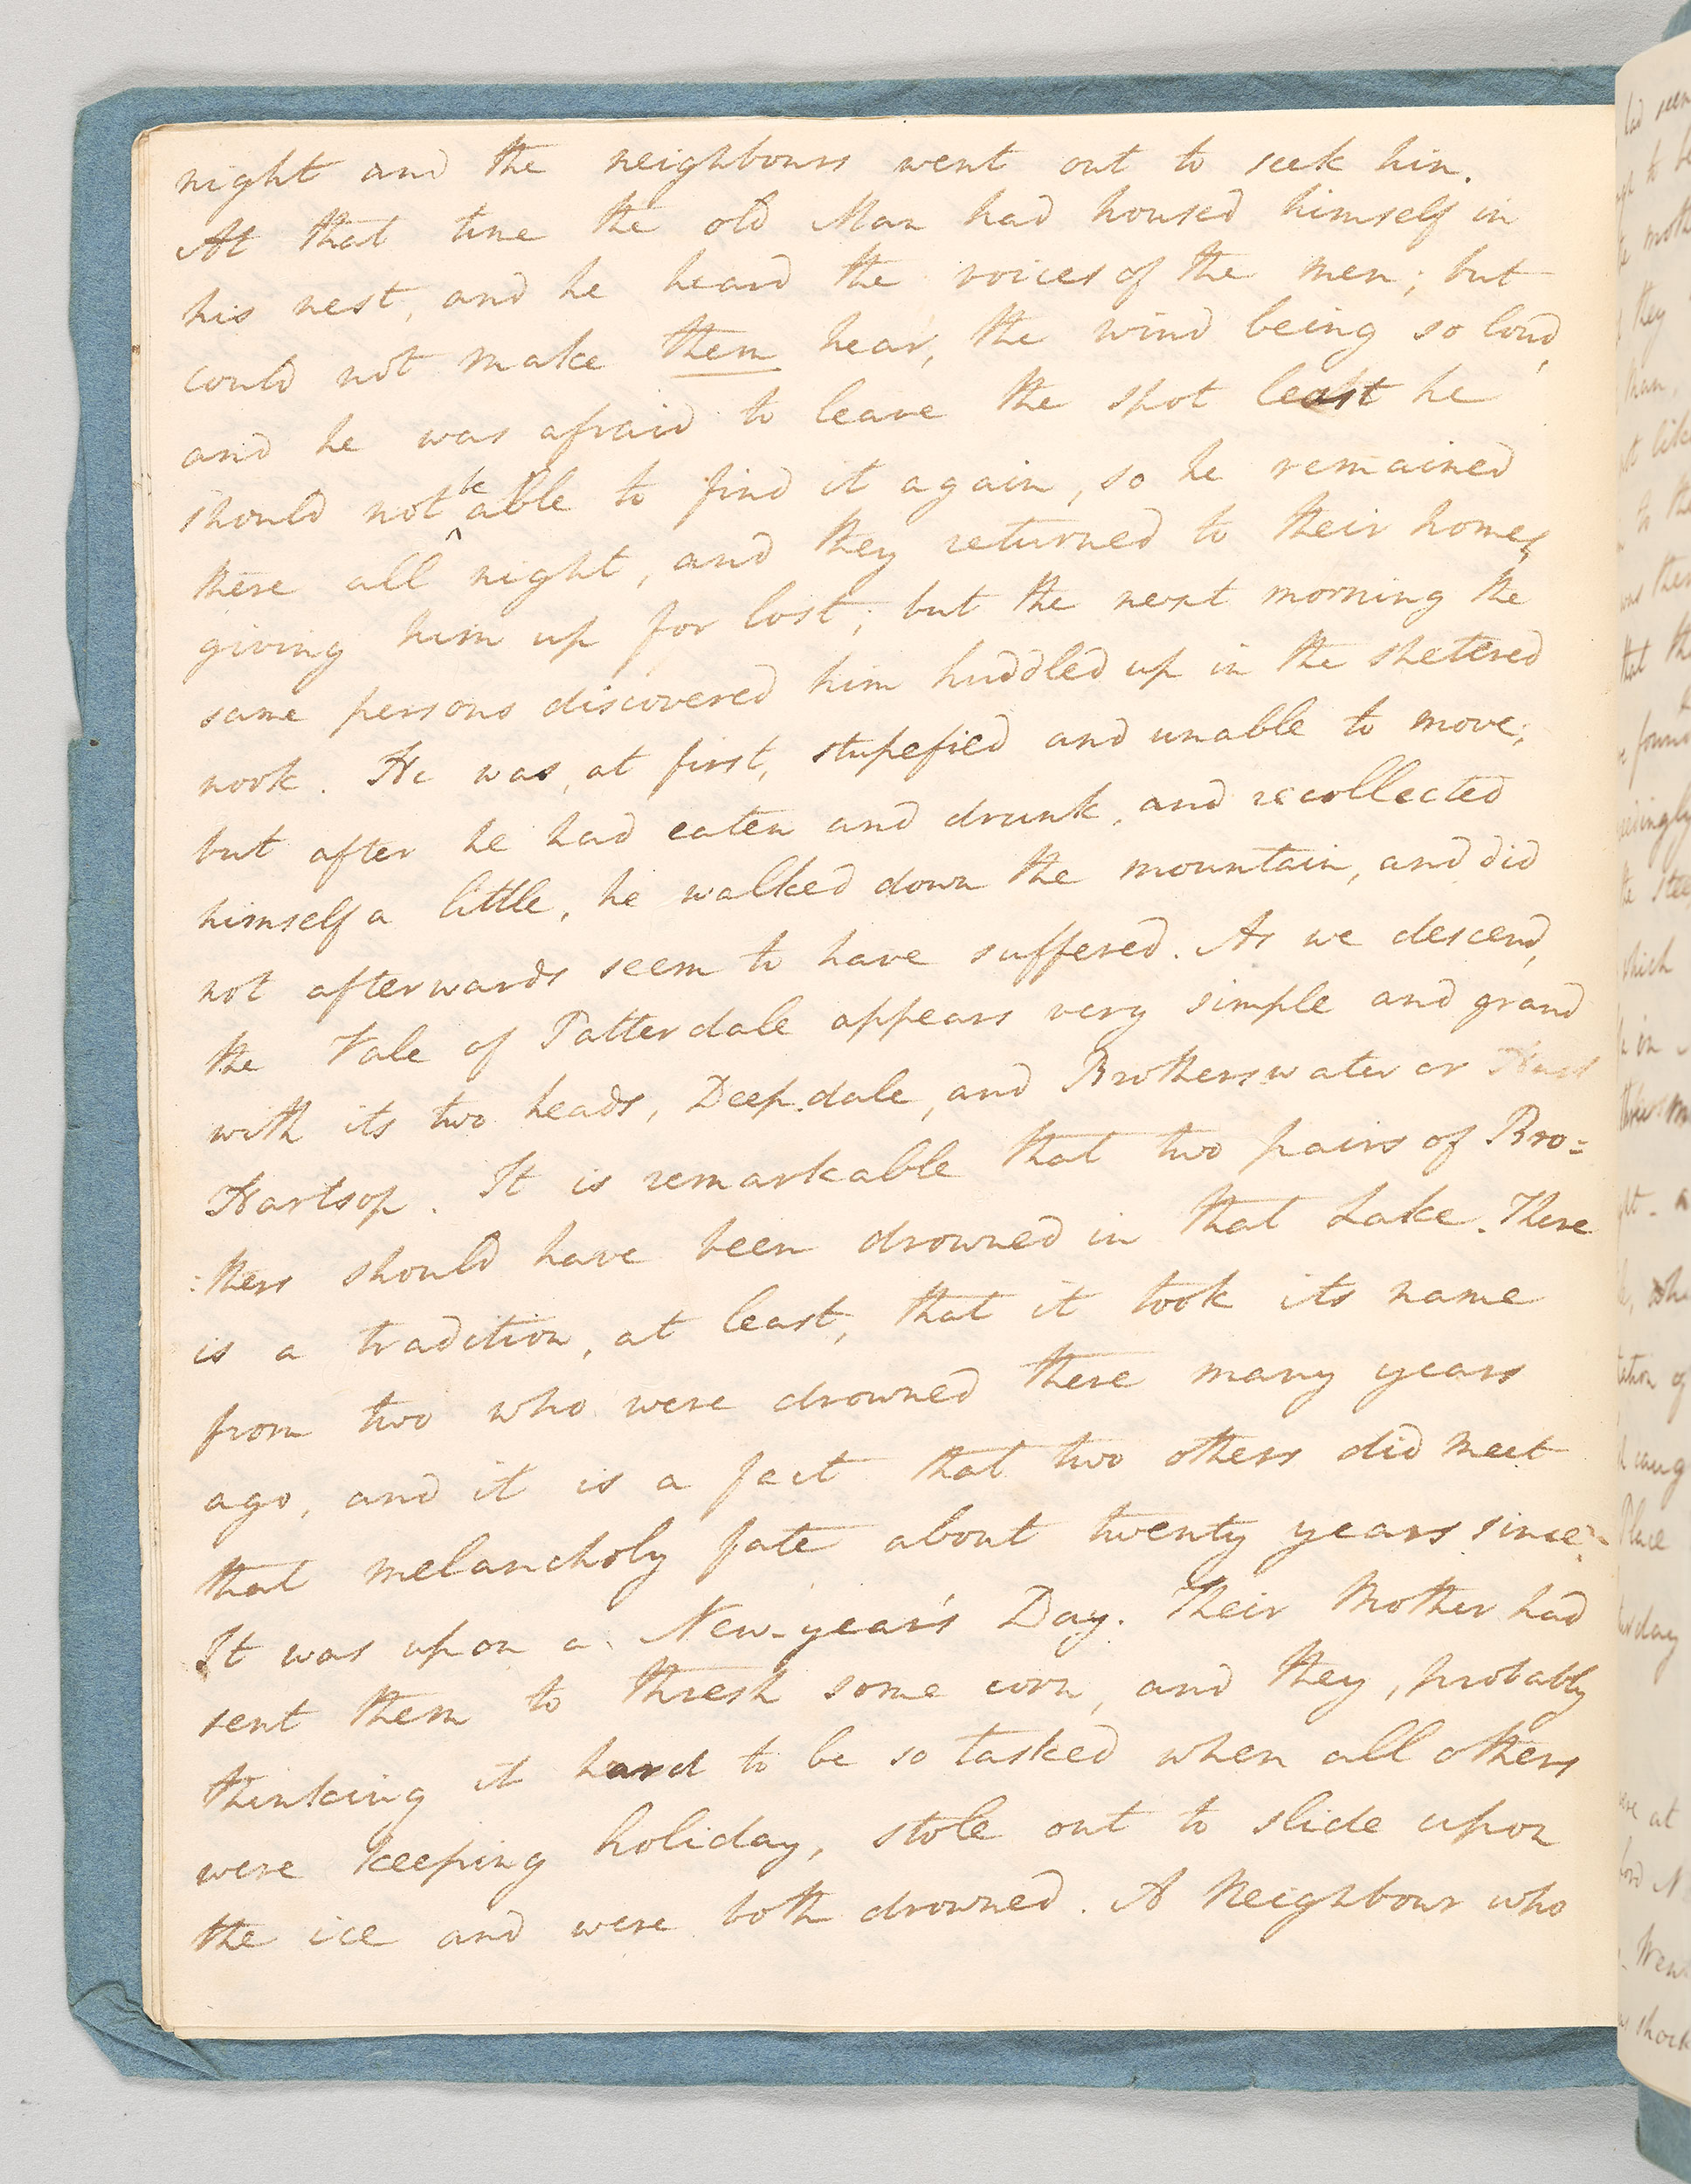 night and the neighbours went out to seek him.
At that time the old Man had housed himself in
his nest, and he heard the voices of the men; but
could not make them hear, the wind being so loud,
and he was afraid to leave the spot least he
should not be able to find it again, so he remained
there all night, and they returned to their homes,
giving him up for lost; but the next morning the
same persons discovered him huddled up in the sheltered
nook. He was, at first, stupefied and unable to move;
but after he had eaten and drunk, and recollected
himself a little, he walked down the mountain, and did
not afterwards seem to have suffered. As we descend,
the Vale of Patterdale appears very simple and grand
with its two heads, Deepdale, and Brotherswater or
Hartsop. It is remarkable that two pairs of Bro=
:thers should have been drowned in that Lake. There
is a tradition, at least, that it took its name
from two who were drowned there many years
ago, and it is a fact that two others did meet
that melancholy fate about twenty years since.
It was upon a New-year's Day. Their Mother had
sent them to thresh some corn, and they, probably
thinking it hard to be so tasked when all others
were keeping holiday, stole out to slide upon
the ice and were both drowned. A Neighbour who